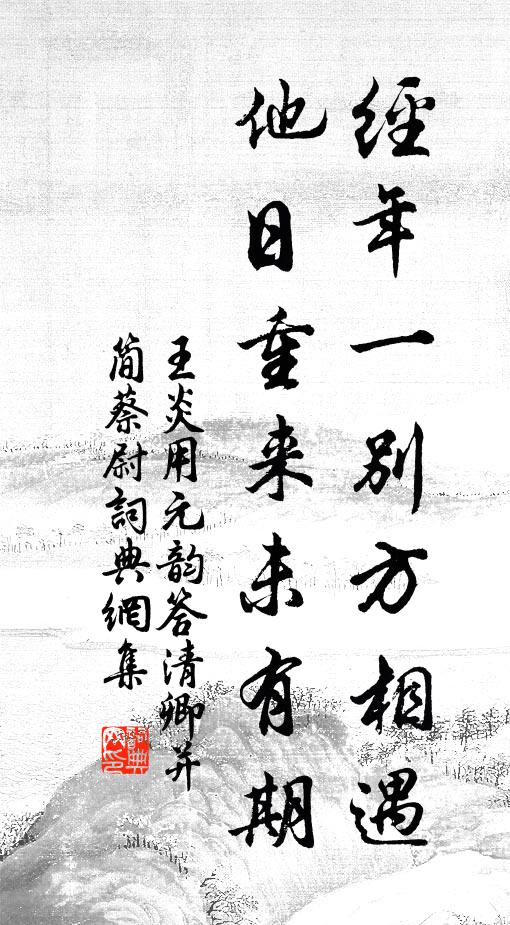 經年一別方相遇
他日重来未有期
王炎用元韵答清卿并
简蔡尉詞典網集